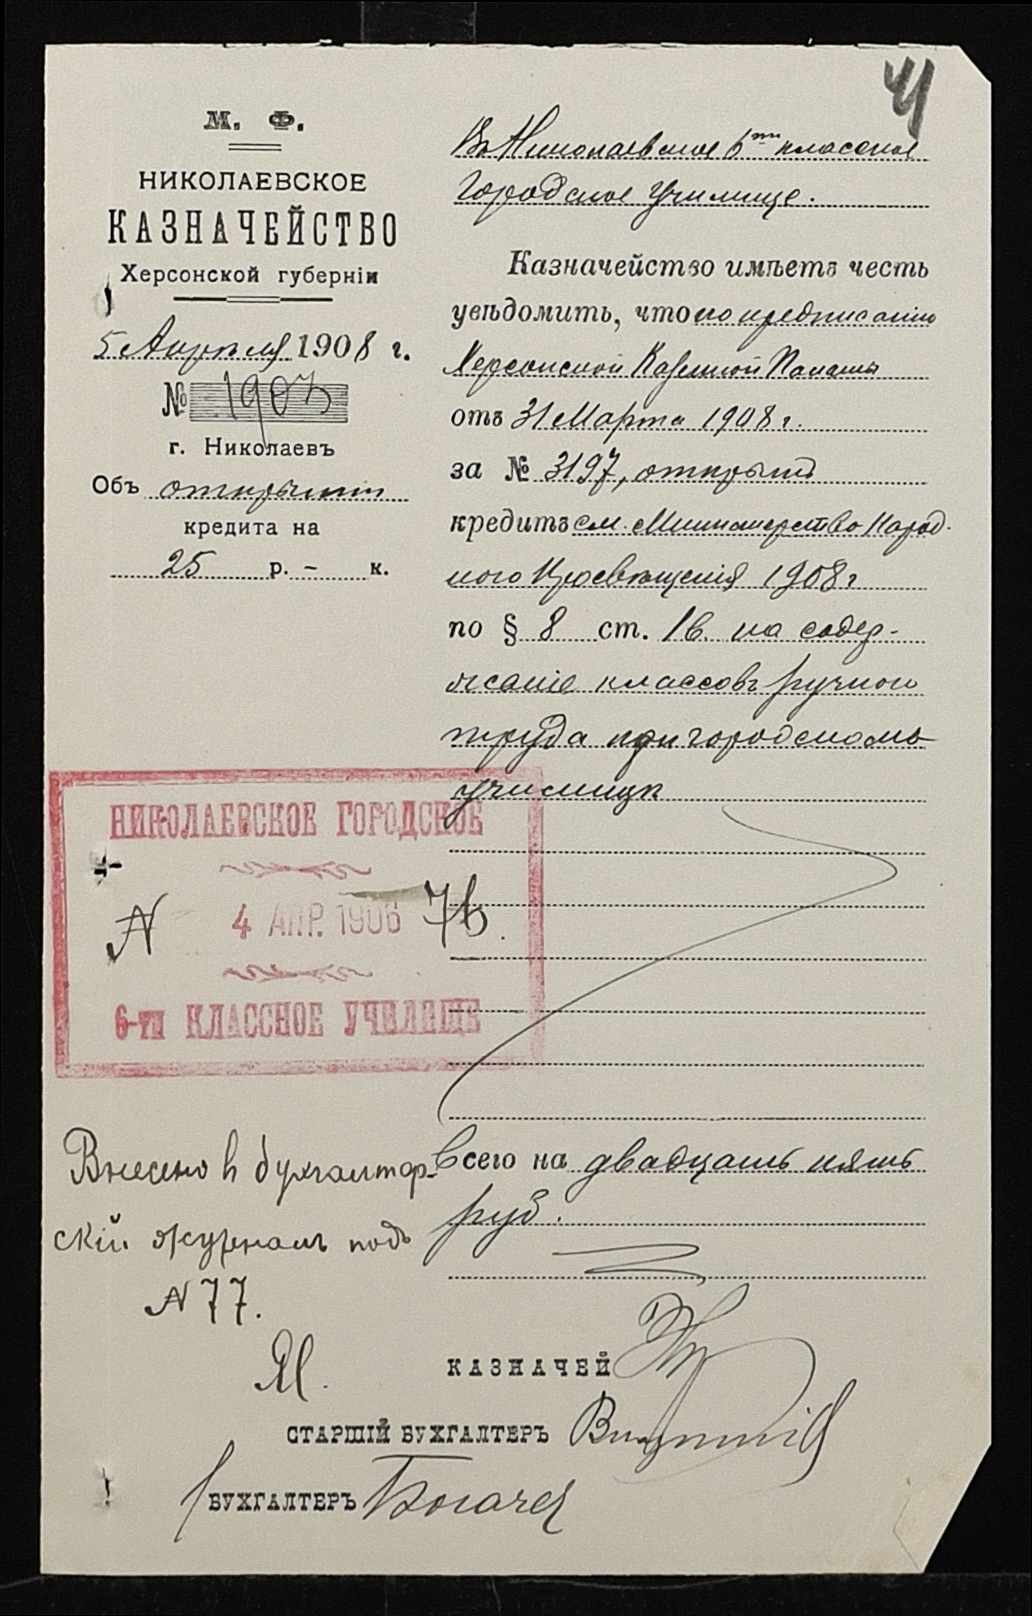 41
М. Ф.
НИКОЛАЕВСКОЕ
КАЗНАЧЕЙСТВО
Херсонской губерніи
5 Апрѣля 1908 г.
№ 1903
г. Николаевъ
Объ открытіи
кредита на
25 р. – к.
Въ Николаевское 6ти классное
Городское Училище.
Казначейство имѣетъ честь
увѣдомить, что по предписанію
Херсонской Казенной Палаты
отъ 31 Марта 1908 г.
за № 3197, открытъ
кредитъ см. Министерства Народ-
ного Просвѣщенія 1908 г
по § 8 ст. 1в. на содер-
жаніе классовъ ручного
труда при городскомъ
училищѣ
НИКОЛАЕВСКОЕ ГОРОДСКОЕ
N 4 АПР. 1906 76.
6-ти КЛАССНОЕ УЧИЛИЩЕ
Всего на двадцать пять
руб.
Внесено в бухгалтер-
скій журналъ подъ
N 77.
КАЗНАЧЕЙ
СТАРШІЙ БУХГАЛТЕРЪ
БУХГАЛТЕРЪ